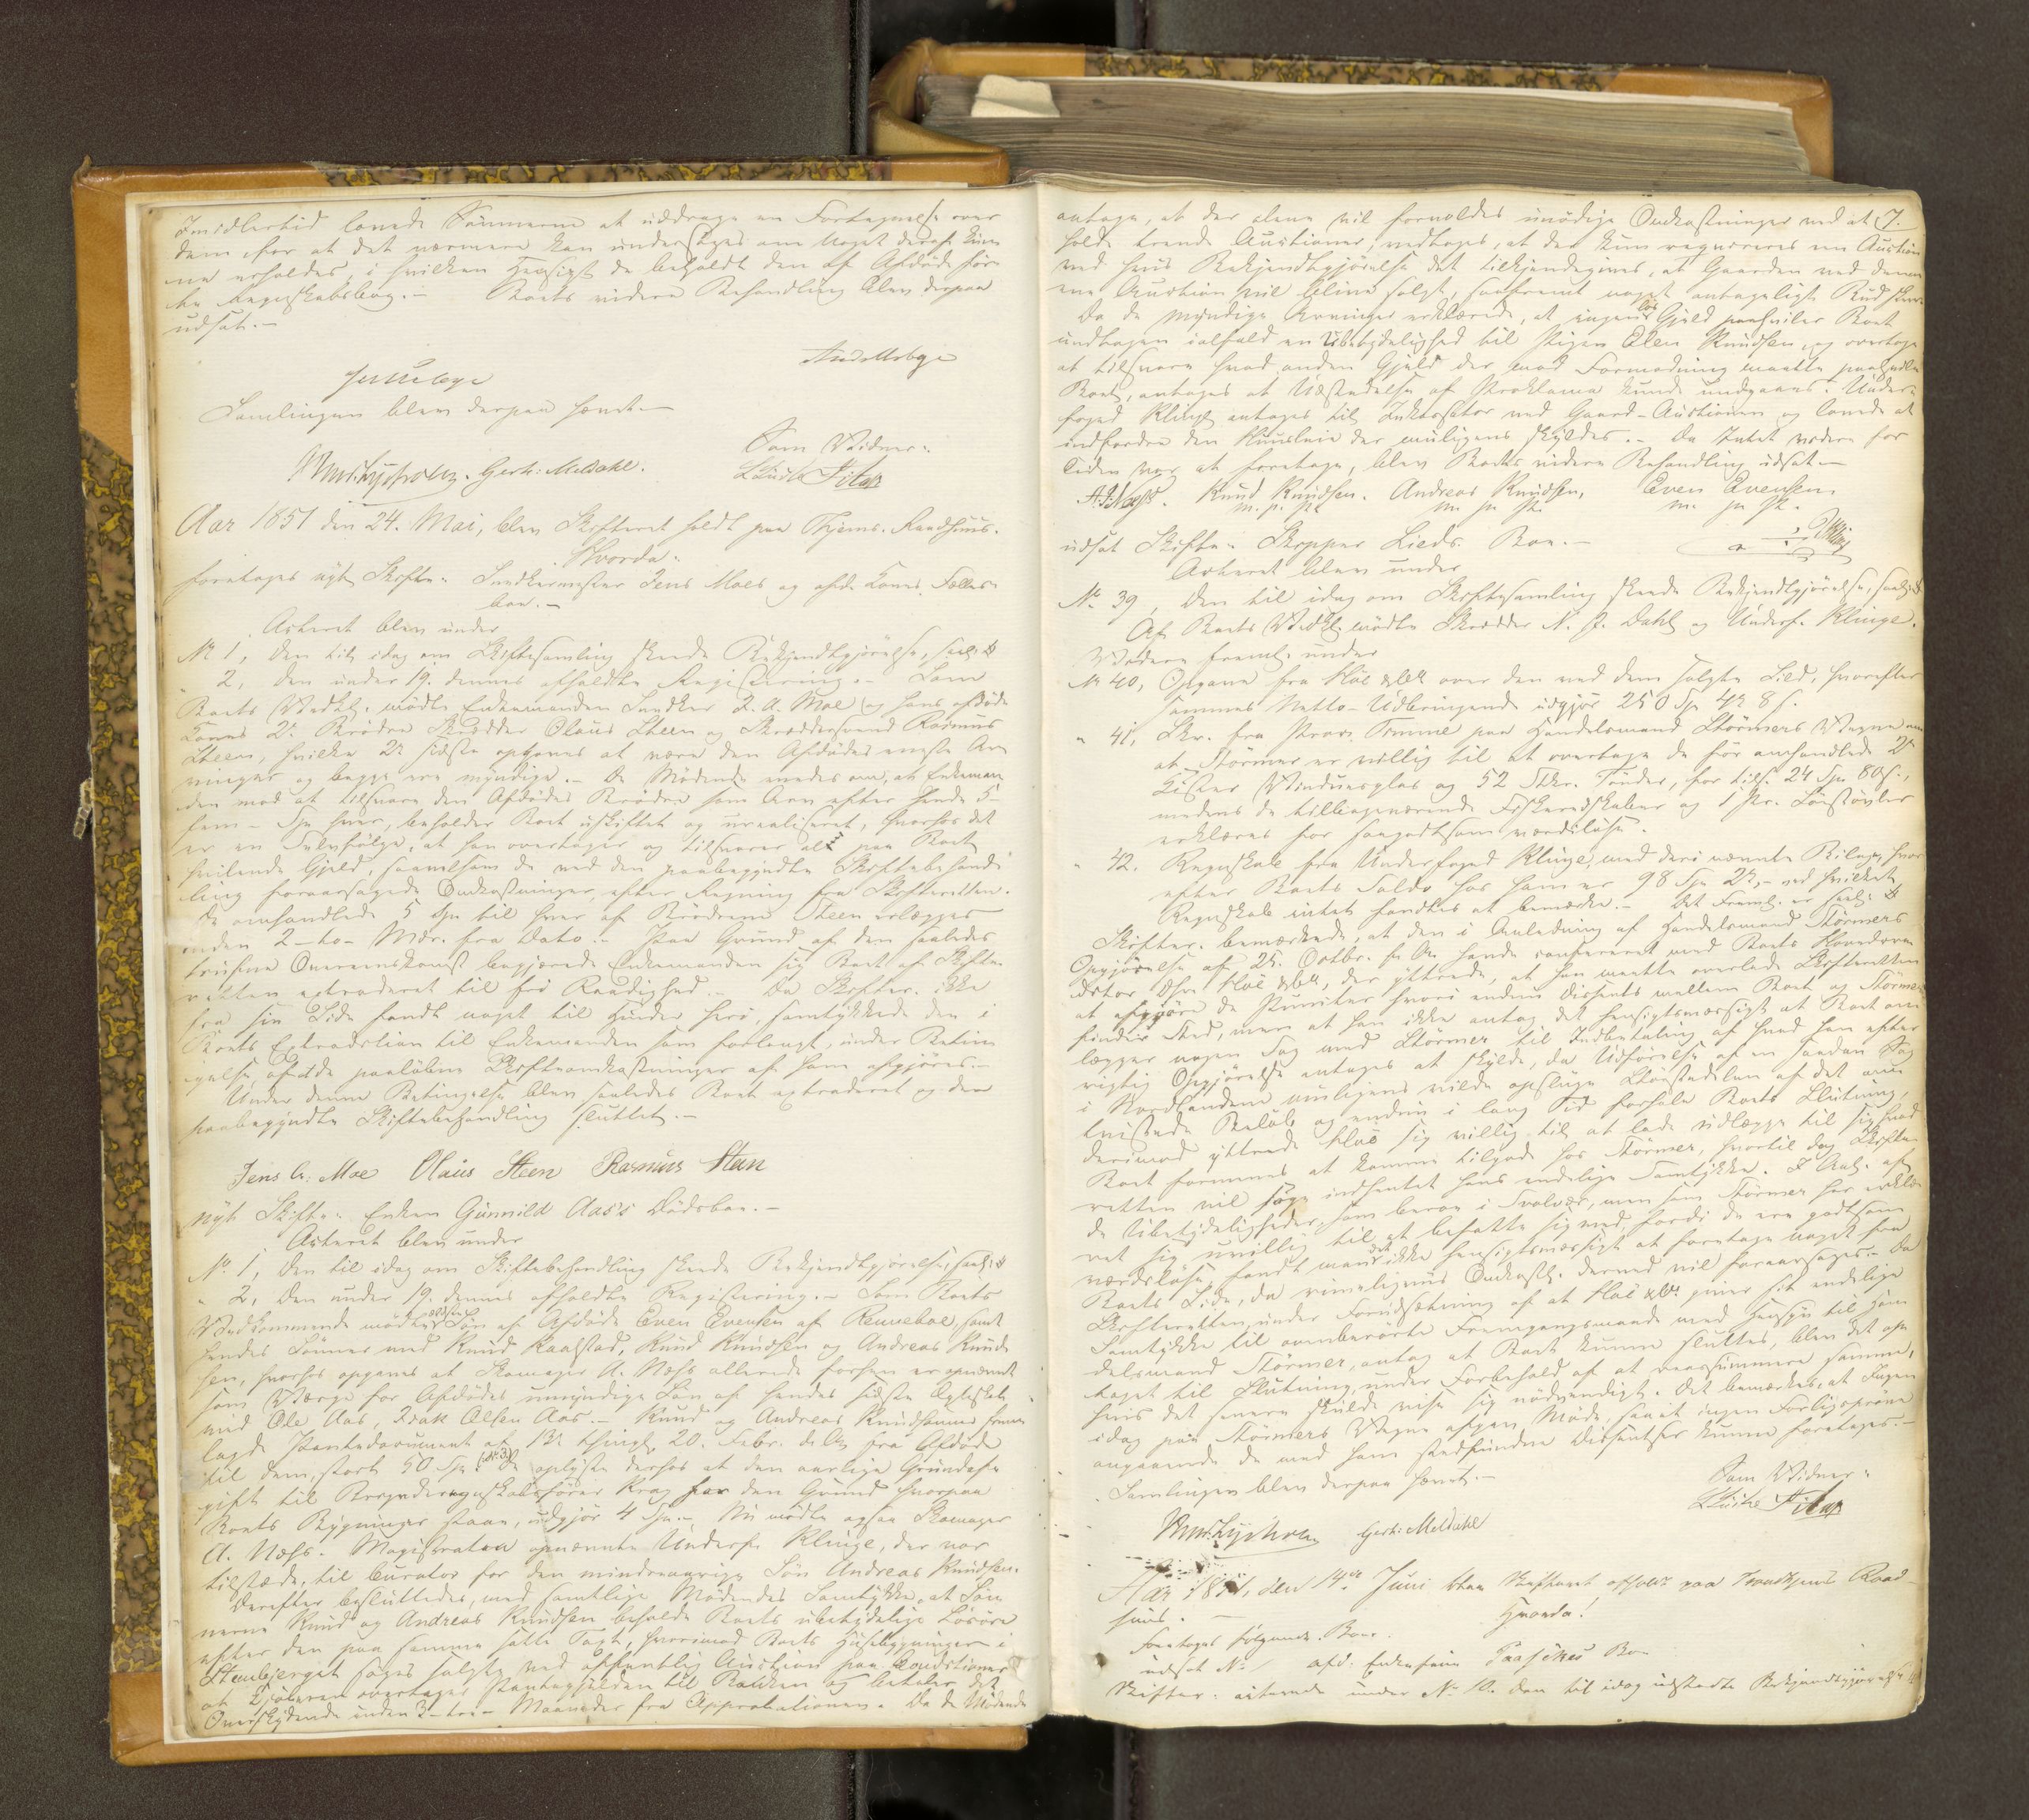 Imidlertid lovede Sønnerne at uddrage en Fortegnelse over
dem, for at det nærmere kan undersøges om Noget deraf kun-
ne erholdes, i hvilken Hensigt de beholdt den af Afdøde før-
te Regnskabsbog.- Boets videre Behandling blev derpaa
udsat.-
Samlingen blev derpaa hævet.-
Som Vidner:
Gerh: Meldahl.
Aar 1851 den 24. Mai, blev Skifteret holdt paa Thjems. Raadhuus.
Hvorda:
foretages nyt Skifte: Snedkermester Jens Moes og afd. Kones Fælles-
boe.-
Acteret blev under
No 1, den til idag om Skiftesamling skeede Bekjendtgjørelse, saal:
" 2, den under 19. dennes afholdte Registrering.- Som
Boets Vedk. mødte Enkemanden Snedker J. A. Moe og hans afdøde
Kones 2de Brødre Skrædder Olaus Steen og Skræddersvend Rasmus
Steen, hvilke 2de sidste opgaves at være den Afdødes eneste Ar-
vinger og begge ere myndige.- De Mødende enedes om, at Enkeman-
den mod at tilsvare den Afdødes Brødre som Arv efter hende 5-
fem- Spd hver, beholder Boet uskiftet og urealiseret, hvorhos det
er en Selvfølge, at han overtager og tilsvarer alt paa Boet
hvilende Gjeld, saavelsom de ved den paabegyndte Skiftebehand-
ling foraarsagede Omkostninger, efter Regning fra Skifteretten.
De omhandlede 5 Spd til hver af Brødrene Steen erlægges
inden 2-to- Mdr. fra Dato.- Paa Grund af den saaledes
trufne Overeenskomst begjærede Enkemanden sig Boet af Skifte-
retten extraderet til fri Raadighed.- Da Skifter. ikke
fra sin Side fandt noget til Hinder heri, samtykkede den i
Boets Extradition til Enkemanden som forlangt, under Betin-
gelse af at de paaløbne Skifteomkostninger af ham afgjøres.-
Under denne Betingelse blev saaledes Boet extraderet og den
paabegyndte Skiftebehandling sluttet.-
Jens A: Moe Olaus Steen Rasmus Steen
nyt Skifte: Enken Gunnild Aas's Dødsboe.-
Acteret blev under
No 1, den til idag om Skiftebehandling skeede Bekjendtgjørelse, saal:
" 2, den under 19. dennes afholdte Registering.- Som Boets
Vedkommende mødte ældste Søn af Afdøde Even Evensen af Renneboe, samt
hendes Sønner med Knud Kaalstad, Knud Knudsen og Andreas Knud-
sen, hvorhos opgaves at Skomager A. Næss allerede forhen er opnævnt
som Værge for Afdødes umyndige Søn af hendes sidste Ægteskab
med Ole Aas, Isak Olsen Aas.- Knud og Andreas Knudsønner frem-
lagde Pantedocument af 13 thingl. 20. Febr. d. A. fra Afdøde
til dem, stort 50 Spd (No 3). De oplyste derhos at den aarlige Grundaf-
gift til Brygderegnskabsfører Krag for den Grund hvorpaa
Boets Bygninger staae, udgjør 4 Spd.- Nu mødte ogsaa Skomager
A. Næss. Magistraten opnævnte Underf. Klinge, der var
tilstæde, til Curator for den mindreaarige Søn Andreas Knudsen.
Derefter besluttedes, med samtlige Mødendes Samtykke, at Søn-
nerne Knud og Andreas Knudsen beholde Boets ubetydelige Løsøre
efter den paa samme satte Taxt, hvorimod Boets Huusebygninger i
Steenbjerget søges solgte ved offentlig Auction paa Conditioner
at Kjøberen overtager Pantegjælden til Banken og betaler det
Overskydende inden 3-tre- Maaneder fra Approbationen. Da de Mødende
antage, at der alene vil forvoldes unødige Omkostninger ved at 7.
holde trende Auctioner, vedtoges, at der kun reqvireres een Auction
ved hvis Bekjendtgjørelse det tilkjendegives, at Gaarden ved denne
ene Auction vil blive solgt, saafremt noget antageligt Bud skeer.
Da de myndige Arvinger erklærede, at ingen løs Gjæld paahviler Boet
undtagen ialfald en Ubetydelighed til Pigen Olen Knudsen, og overtoge
at tilsvare hvad anden Gjæld der mod Formodning maatte paahvile
Boet, antages at Udstædelse af Proklama kunde undgaaes. Under-
foged Klinge antages til Incassator ved Gaard-Auctionen og lovede at
indfordre den Huusleie der muligens skyldes.- Da Intet videre for
Tiden var at foretage, blev Boets videre Behandling udsat.-
A. J. Næss. Knud Knudsen. Andreas Knudsen, Even Evensen.
m. p. P. m. p. P. m. p. P.
udsat Skifte: Skipper Lieds. Boe.-
Acteret blev under
No 39, den til idag om Skiftesamling skeede Bekjendtgjørelse, saal:
Af Boets Vedk. mødte Skrædder N. P. Dahl og Underf. Klinge.
Videre freml. under
No 40, Opgave fra Høe & Co over den ved dem solgte Sild, hvorefter
sammes Netto-Udbringende udgjør 250 Spd 4 8 s.
" 41, Skr. fra Proc. Tomme paa Handelsmand Størmers Vegne om
at Størmer er villig til at overtage de før omhandlede 2de
Kister Vinduesglas og 52 Stkr. Tønder, for tils. 24 Spd 80 s.,
medens de tilbageværende Fiskeredskaber og 1 Pr. Søestøvler
erklæres for saagodtsom værdiløse.
" 42. Regnskab fra Underfoged Klinge, med deri nævnte Bilage, hvor-
efter Boets Saldo hos ham er 98 Spd 2,- ved hvilket
Regnskab intet fandtes at bemærke.- Det Freml. er saal:
Skifter. bemærkede, at den i Anledning af Handelsmand Størmers
Opgjørelse af 25. Octbr. f. A. havde confereret med Boets Hovedcre-
ditor Hr. Høe & Co, der yttrede, at han maatte overlade Skifteretten
at afgjøre de Puncter hvori endnu Dissents mellem Boet og Størmer
finder Sted, men at han ikke antog det hensigtsmæssigt at Boet an-
lægger nogen Sag mod Størmer til Indbetaling af hvad han efter
rigtig Opgjørelse antages at skylde, da Udførelse af en saadan Sag
i Nordlandene muligens vilde opsluge Størstedelen af det om-
tvistede Beløb og endnu i lang Tid forhale Boets Slutning,
derimod yttrede Høe sig villig til at lade udlægge til sig hvad
Boet formenes at komme tilgode hos Størmer, hvortil dog Skifte-
retten vil søge indhentet hans endelige Samtykke. I Anl. af
de Ubetydeligheder, som beroe i Svolvær, men som Størmer har erklæ-
ret sig uvillig til at befatte sig med, fordi de ere godtsom
værdiløse, fandt man det ikke hensigtsmæssigt at foretage noget fra
Boets Side, da rimeligviis Omkostn. derved vil foraarsages.- Da
Skifteretten, under Forudsætning af at Høe & Co. giver sit endelige
Samtykke til ovenberørte Fremgangsmaade med Hensyn til Han-
delsmand Størmer, antog at Boet kunne sluttes, blev det op-
taget til Slutning, under Forbehold af at reassummere samme,
hvis det senere skulde vise sig nødvendigt. Det bemærkes, at Ingen
idag paa Størmers Vegne afgav Møde, saa at ingen Forligsprøve
angaaende de med ham stedfindende Dissentser kunne foretages.-
Samlingen blev derpaa hævet.-
Som Vidner:
Gerh: Meldahl
Aar 1851, den 14de Juni blev Skifteret afholdt paa Trondhjems Raad-
huus.- Hvorda!
Foretages følgende Boer.
udsat No 1 afd. Enkefrue Paaskes Bo
Skifter: acterede under No 10. den til idag udstedte Bekjendtgjørelse